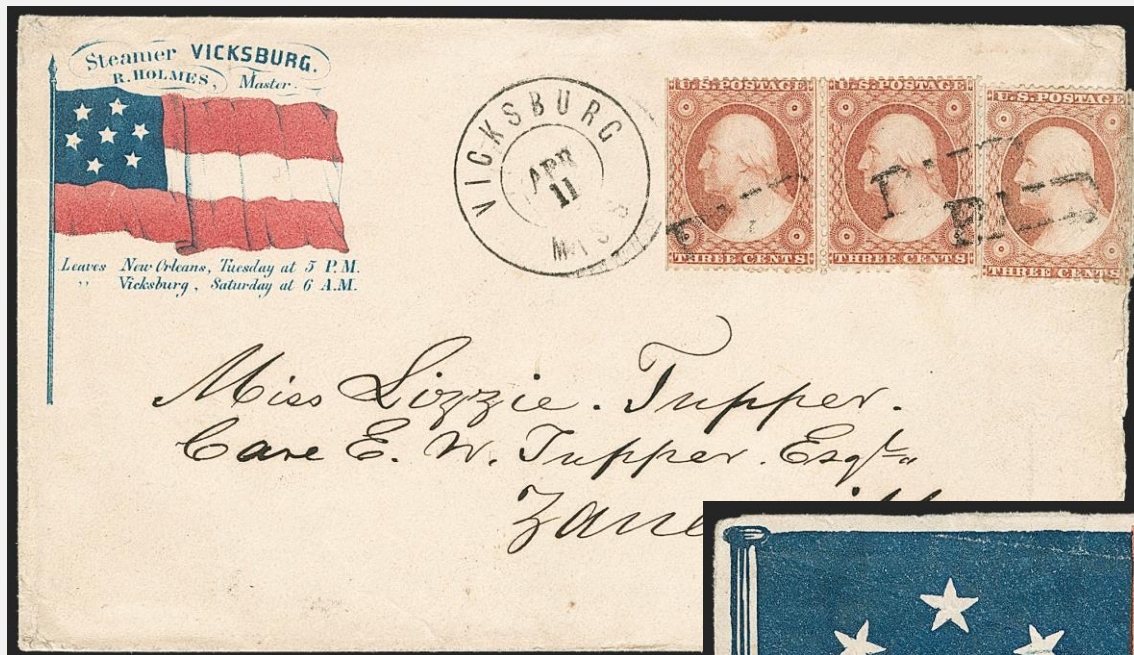 Steamer VICKSBURG.
R. HOLMES, Master.
Leaves New Orleans, Tuesday at 5 P.M.
" Vicksburg, Saturday at 6 A.M.
VICKSBURG
APR
11
MISS
U.S. POSTAGE
THREE CENTS
U.S. POSTAGE
THREE CENTS
U.S. POSTAGE
THREE CENTS
PAID
PAID
PAID
Miss Lizzie. Tupper.
Care E. W. Tupper. Esqr.